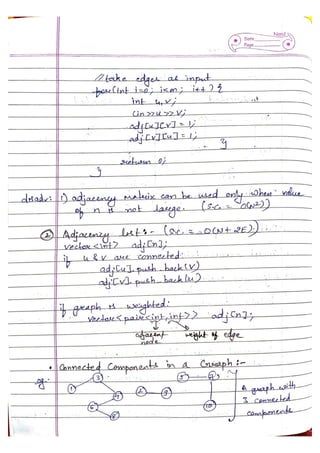 Date
Page
// take edges as input
for (int i=0; i<m; i++) {
int u,v;
cin >>u >>v;
adj[u][v] = 1;
adj[v][u] = 1;
}
return 0;
}
draw: 1) adjacency matrix can be used only when value
of n is not large. (S.C. = O(N²))
② Adjacency lists:- (S.C. = O(N+2E))
vector <int> adj[n];
if u & v are connected:
adj[u].push_back(v)
adj[v].push_back(u)
if graph is weighted:
vector < pair<int,int> > adj[n];
adjacent weight of edge
node
• Connected Components in a Graph :-
eg:
A graph with
3 connected
components